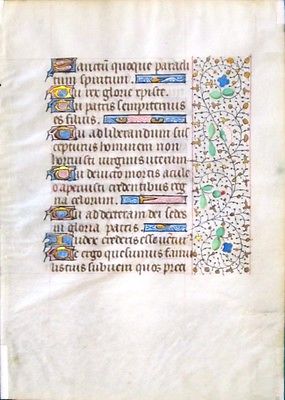 Sanctum quoque paracli
tum spiritum.
Tu rex glorie xpiste.
Tu patris sempiternus
es filius.
Tu ad liberandum sus
cepturus hominem non
horruisti virginis uterum
Tu devicto mortis acule
o aperuisti credentibus reg
na celorum.
Tu ad dexteram dei sedes
in gloria patris.
Iudex crederis esse venturus
Te ergo quesumus famu
lis tuis subveni quos preci